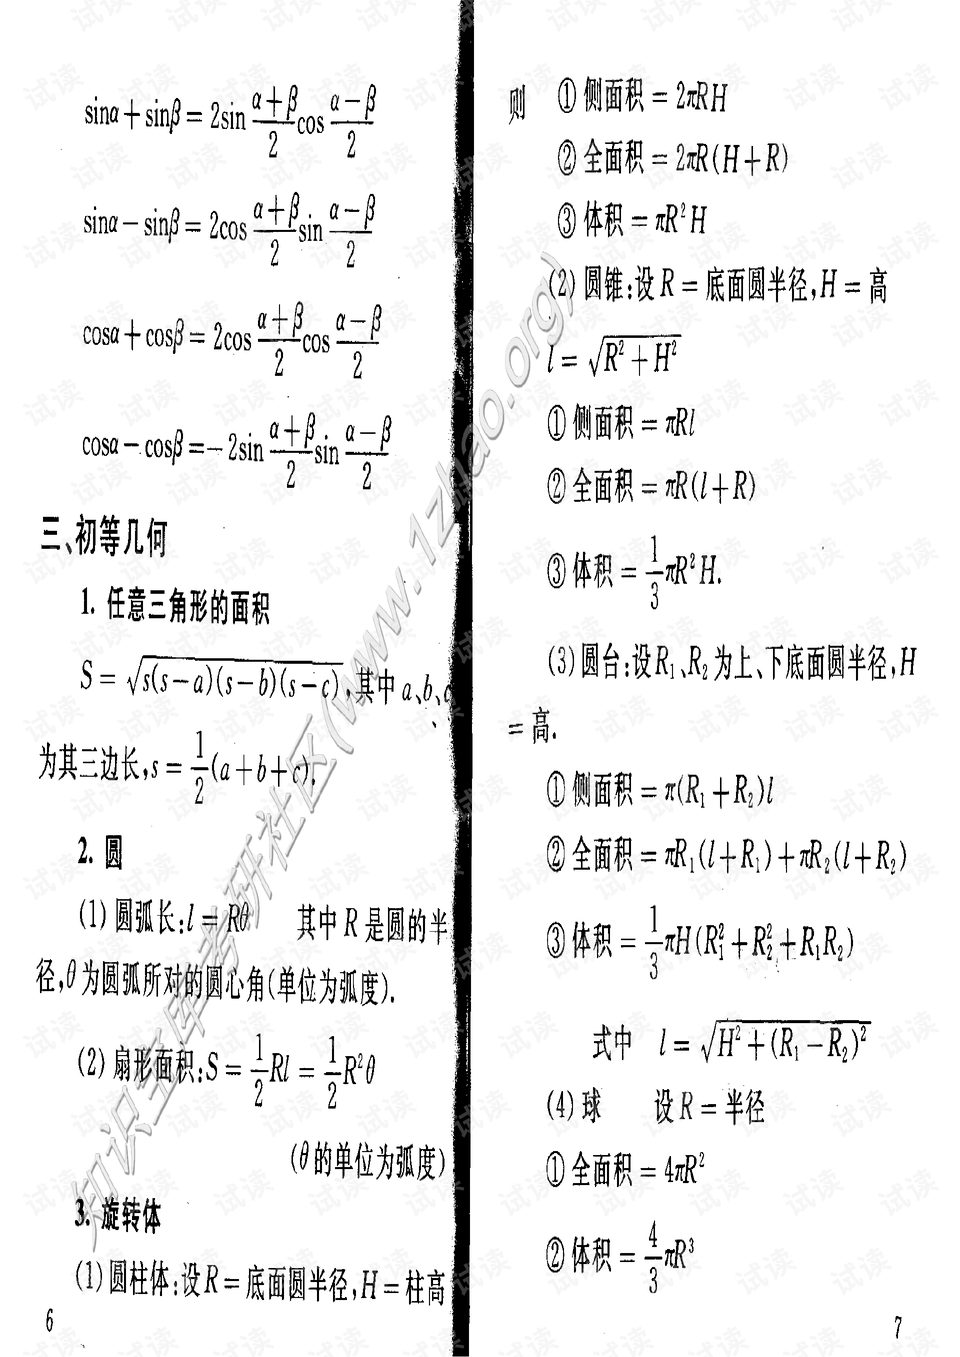 sinα+sinβ=2sin (α+β)/2 cos (α−β)/2
sinα−sinβ=2cos (α+β)/2 sin (α−β)/2
cosα+cosβ=2cos (α+β)/2 cos (α−β)/2
cosα−cosβ=−2sin (α+β)/2 sin (α−β)/2
三、初等几何
1. 任意三角形的面积
S=√(s(s−a)(s−b)(s−c)),其中a、b、c
为其三边长,s=1/2(a+b+c).
2. 圆
(1)圆弧长:l=Rθ 其中R是圆的半
径,θ为圆弧所对的圆心角(单位为弧度).
(2)扇形面积:S=1/2Rl=1/2R²θ
(θ的单位为弧度)
3. 旋转体
(1)圆柱体:设R=底面圆半径,H=柱高
6
则 ①侧面积=2πRH
②全面积=2πR(H+R)
③体积=πR²H
(2)圆锥:设R=底面圆半径,H=高
l=√(R²+H²)
①侧面积=πRl
②全面积=πR(l+R)
③体积=1/3πR²H.
(3)圆台:设R₁、R₂为上、下底面圆半径,H
=高.
①侧面积=π(R₁+R₂)l
②全面积=πR₁(l+R₁)+πR₂(l+R₂)
③体积=1/3πH(R₁²+R₂²+R₁R₂)
式中 l=√(H²+(R₁−R₂)²)
(4)球 设R=半径
①全面积=4πR²
②体积=4/3πR³
7
知识宝库考研社区(www.1zhao.org)
试读